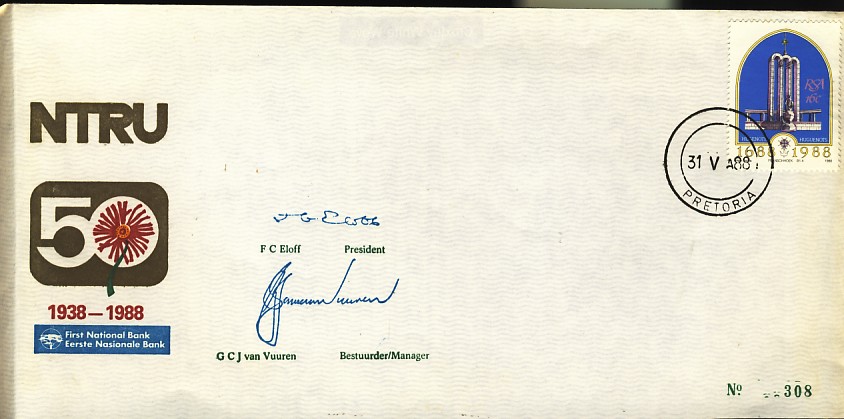 NTRU
50
1938—1988
First National Bank
Eerste Nasionale Bank
F C Eloff President
G C J van Vuuren Bestuurder/Manager
RSA
16c
1688 1988
31 V A88
PRETORIA
Nº 308